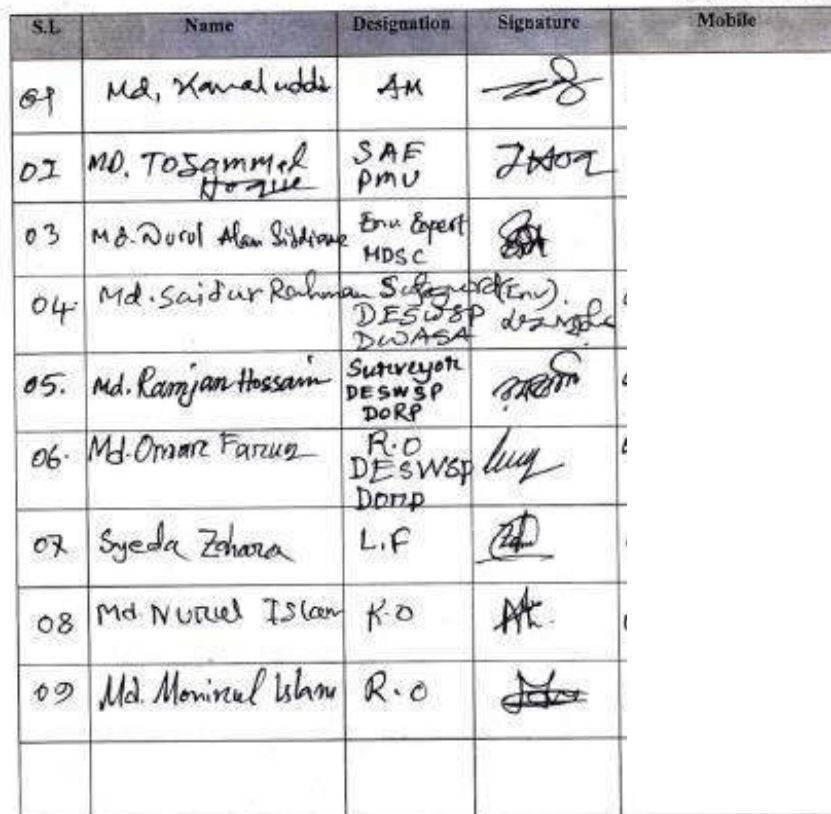 S.L Name Designation Signature Mobile
01 Md, Kamal uddi AM
02 MD. TOSAMMEL SAE
Hoque PMU
03 Md. Nurul Alam Env Expert
MDSC
04. Md. Saidur Rahman Safeguard (Env).
DESWSP
DWASA
05. Md. Ramjan Hossain Surveyor
DESWSP
DORP
06. Md. Omar Faruq R.O
DESWSP
DORP
07 Syeda Zohara L.F
08 Md. Nurul Islam R.O
09 Md. Monirul Islam R.O